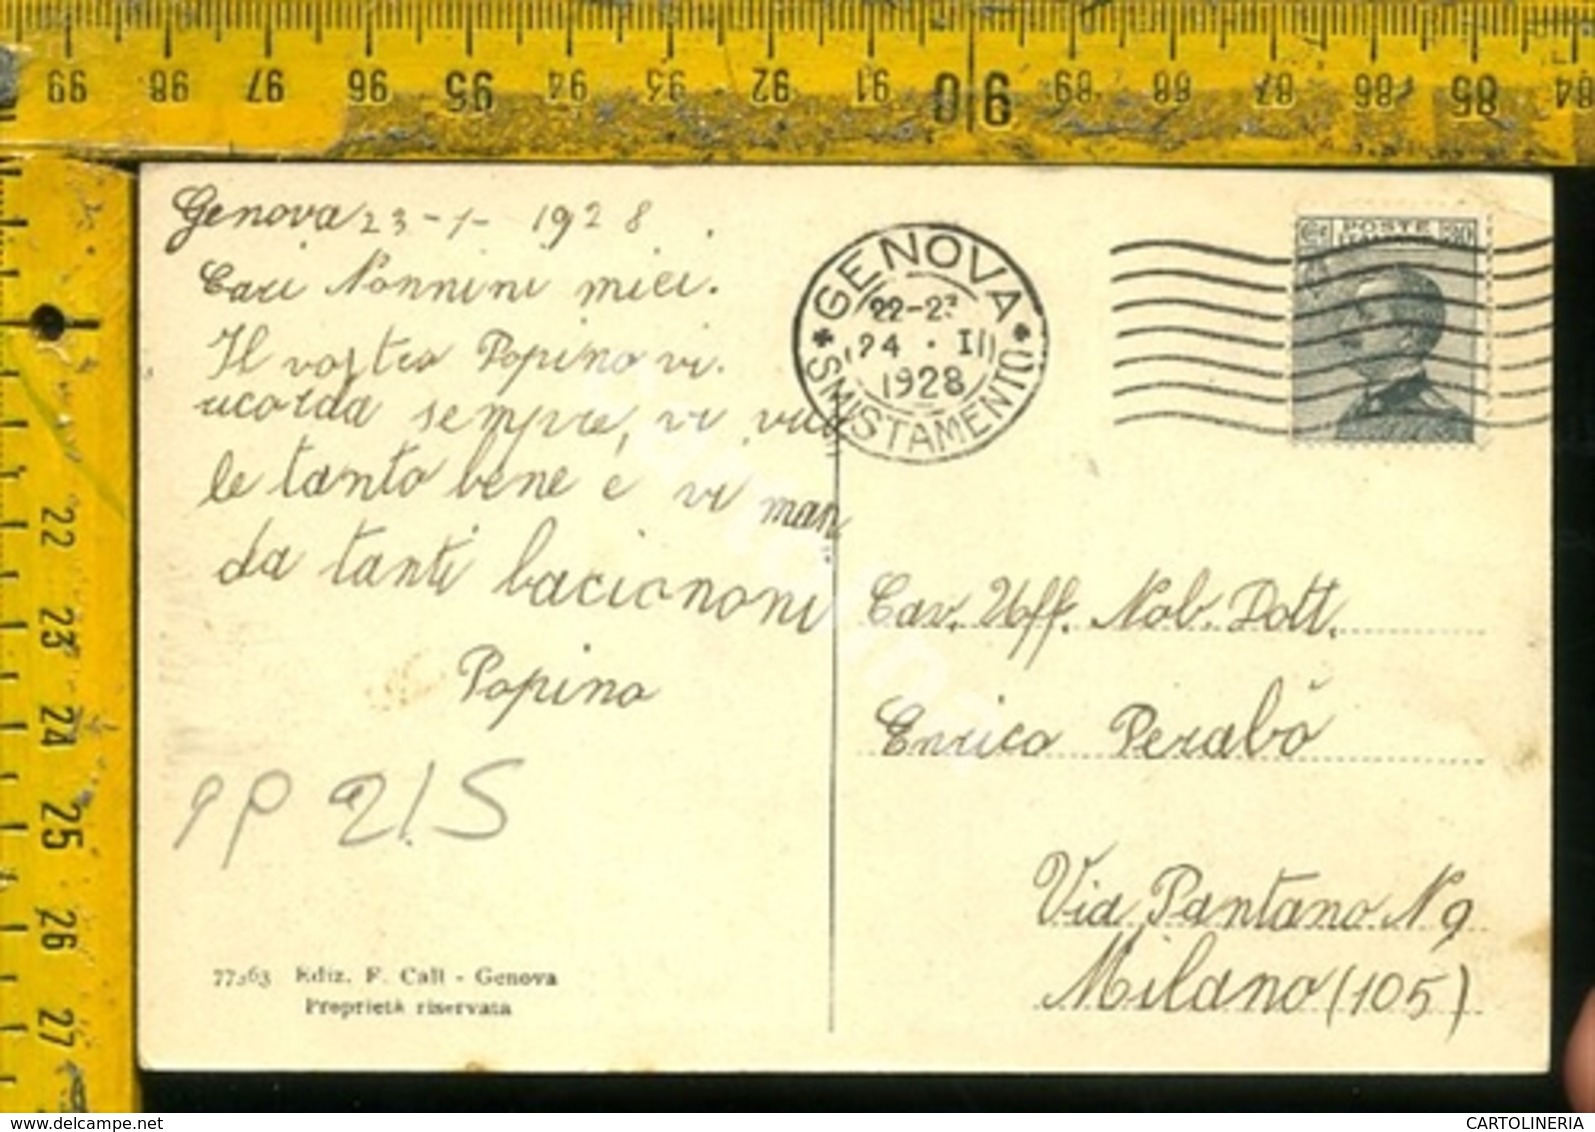 99 98 97 96 95 94 93 92 91 90 89 88 87 86 85 84
Genova 23-1-1928
Cari Nonnini miei.
Il vostro Popino vi
ricorda sempre, vi vuo
le tanto bene e vi man
da tanti bacionони
Popino
PP 215
77563 Ediz. F. Call - Genova
Proprietà riservata
GENOVA
22-23
24 · I
1928
SMISTAMENTO
POSTE
Cav. Uff. Nob. Dott.
Enrico Perabò
Via Pantano N 9
Milano (105)
22
23
24
25
26
27
CARTOLINERIA